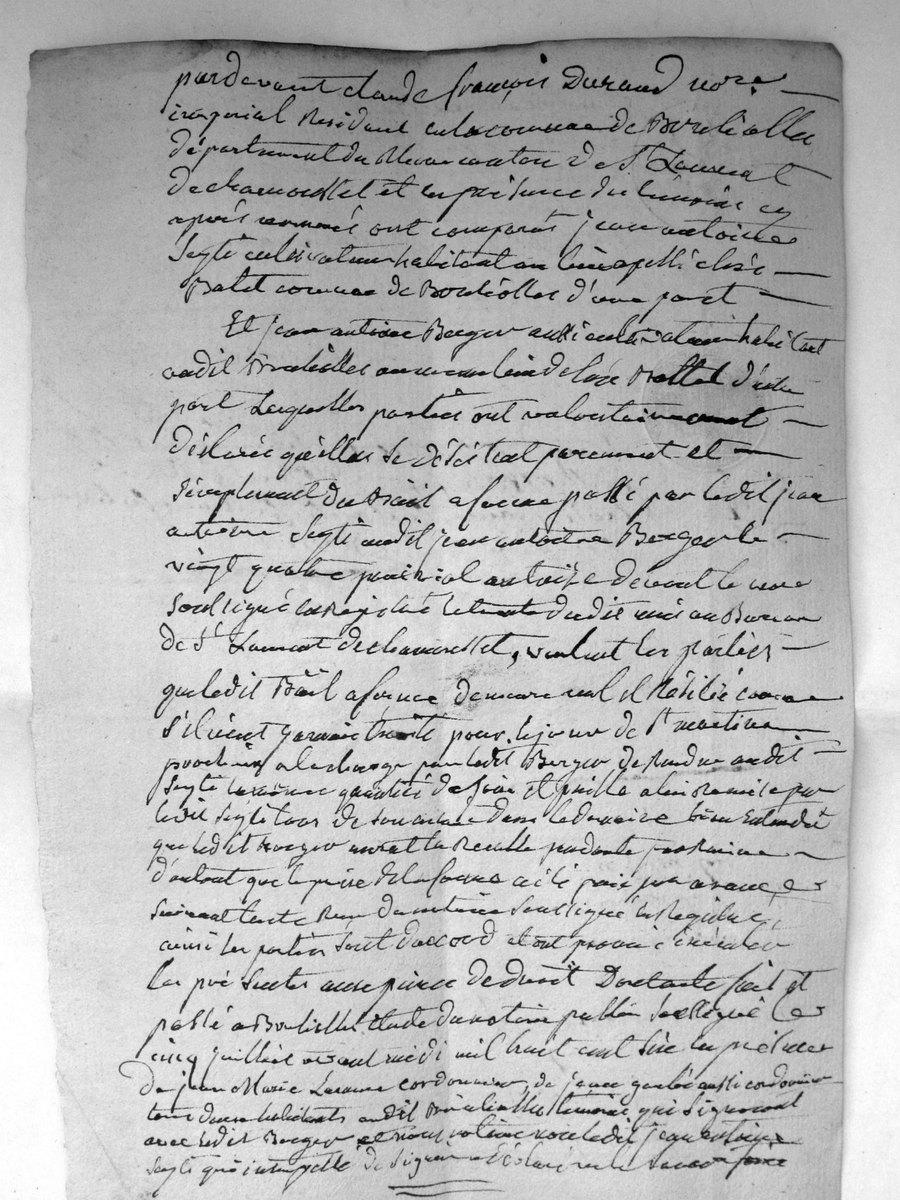 pardevant claude françois Durand nore.
impérial Résident en la commune de Brulliolles
département du Rhone canton de St Laurent
de chamousset et en présence des témoins cy
après nommés ont comparus jean antoine
cultivateur habitant au lieu appellé chez
Balet commune de Brulliolles d'une part
Et jean antoine Berger aussi cultivateur habitant
audit Brulliolles au meme lieu de chez Ballet d'autre
part Lesquelles parties ont volontairement
déclarée qu'elles se désistent purement et
simplement du Bail a ferme passé par ledit jean
antoine audit jean antoine Berger le
vingt quatre prairial an treize devant le nore
soussigné enregistré le dudit mois au Bureau
de St Laurent de chamousset, veulent les parties
que ledit Bail a ferme demeure nul et Résilié comme
s'il n'eut jamais été pour le jour de St martin
prochain a la charge par ledit Berger de Rendre audit
la même quantité de foin et paille a lui Remise par
ledit lors de son entrée dans le domaine bien Entendu
que ledit Berger aura la Recolte pendante
d'autant que le prix de la ferme a été payé par avance
suivant du notaire soussigné enregistré,
ainsi les parties sont d'accord et ont promis Exécuter
les présentes aux peines de droit Dont acte fait et
passé a Brulliolles étude du notaire public soussigné Le
cinq juillet avant midi mil huit cent six en présence
de jean Marie cordonnier, de jean aussi cordonnier
tous deux habitants audit Brulliolles témoins qui signeront
avec ledit Berger et nous notaire non ledit jean antoine
qui interpellé de signer a déclaré ne le